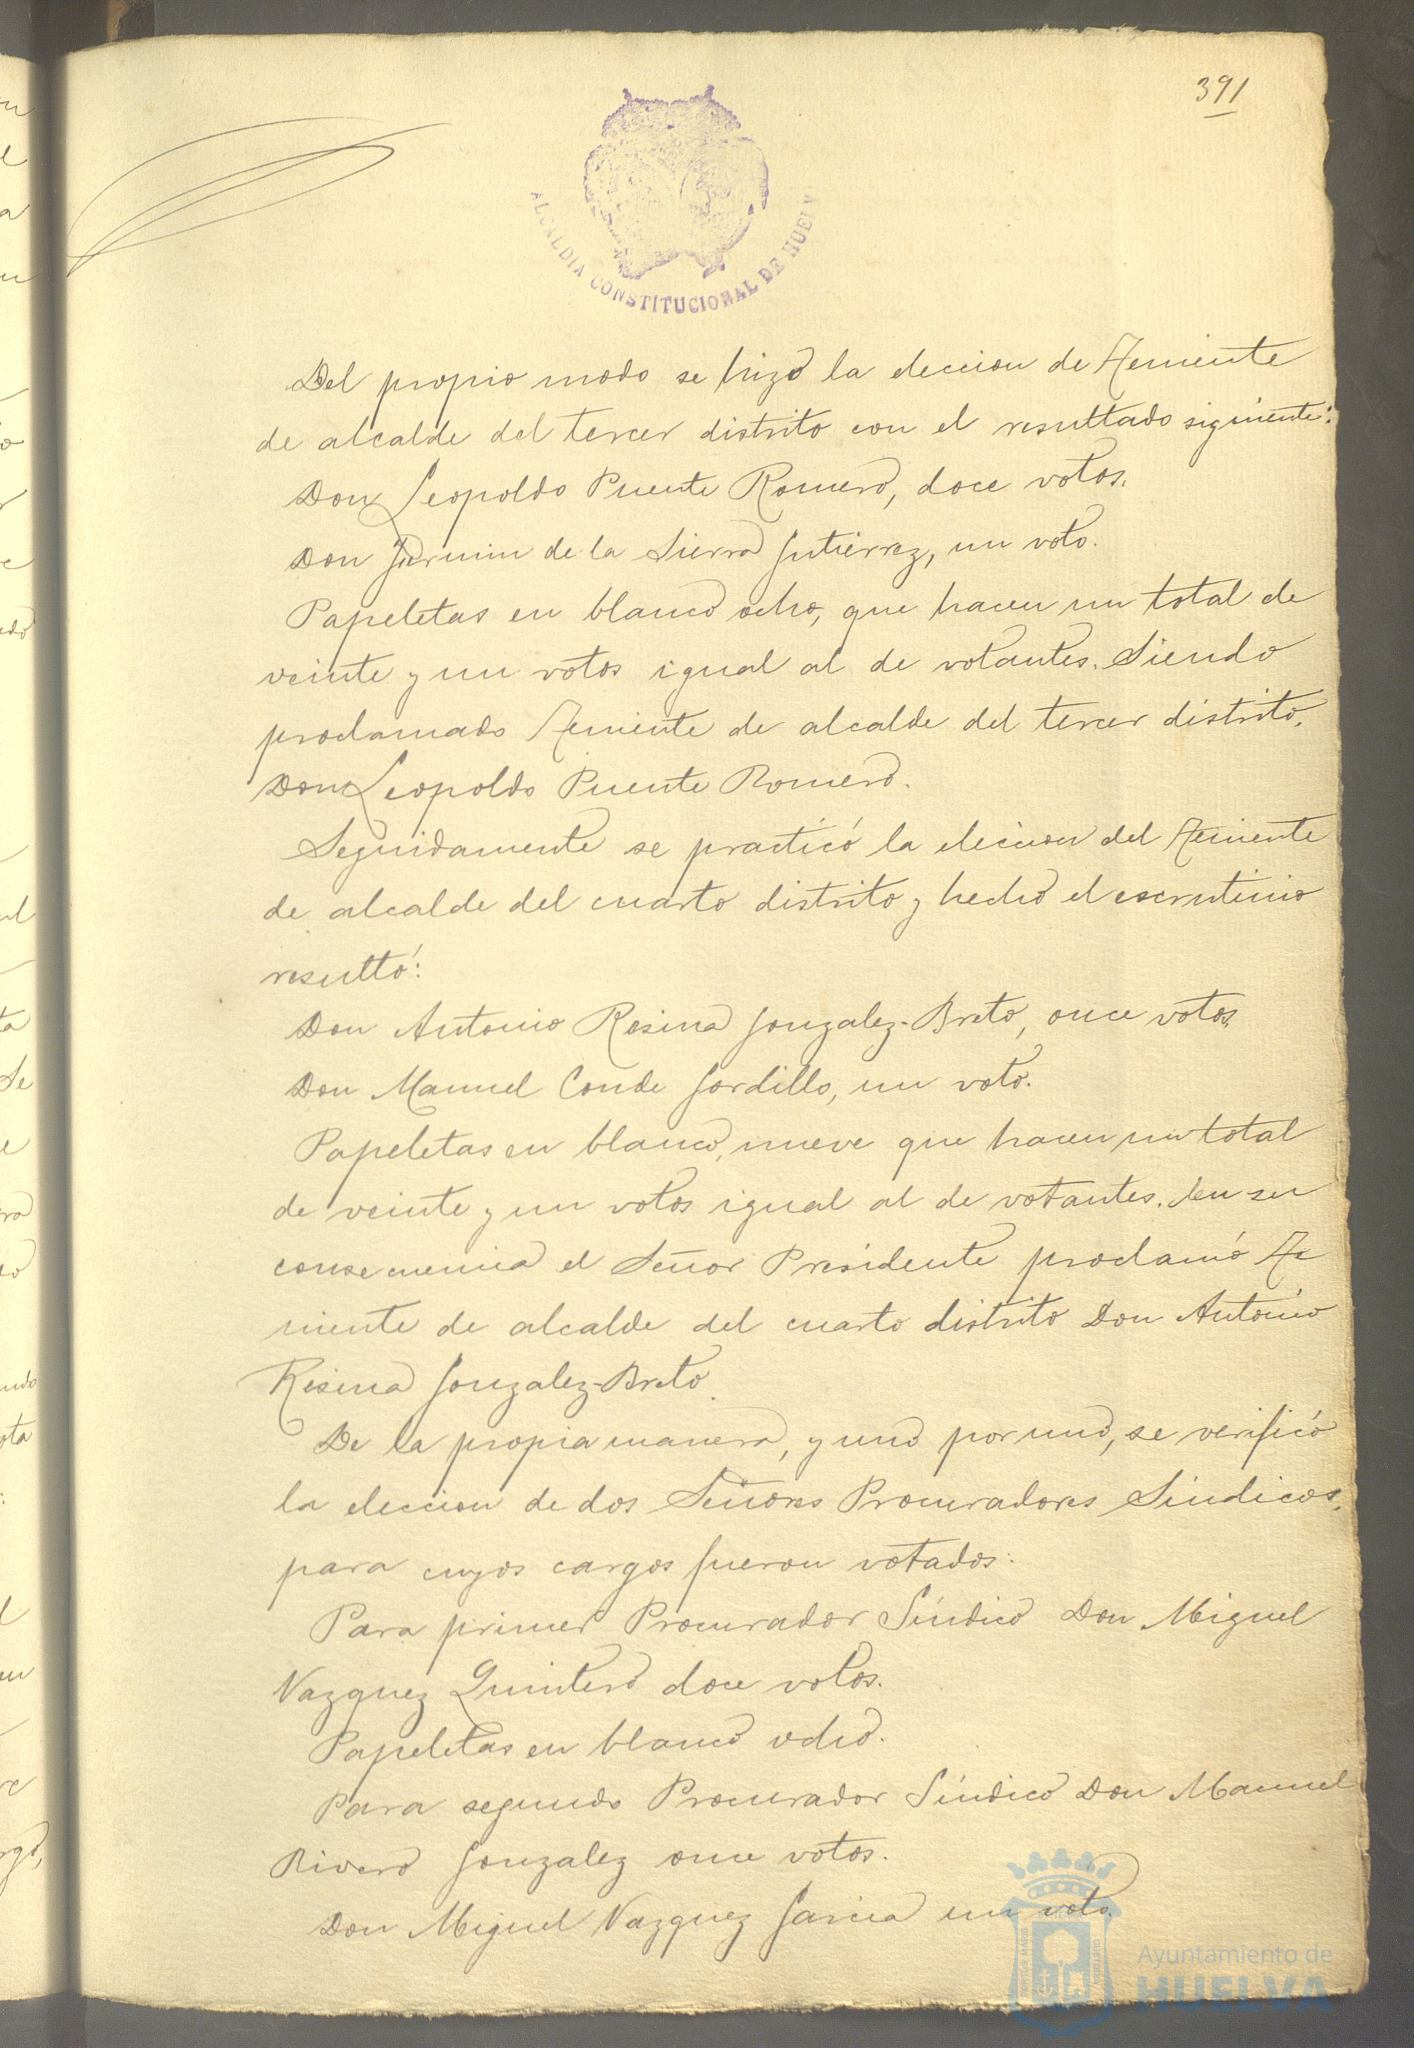 391
ALCALDIA CONSTITUCIONAL DE HUELV
Del propio modo se hizo la eleccion de Teniente
de alcalde del tercer distrito con el resultado siguiente:
Don Leopoldo Puente Romero, doce votos.
Don Fermin de la Sierra Gutierrez, un voto.
Papeletas en blanco ocho, que hacen un total de
veinte y un votos igual al de votantes. Siendo
proclamado Teniente de alcalde del tercer distrito,
Don Leopoldo Puente Romero.
Seguidamente se practicó la eleccion del Teniente
de alcalde del cuarto distrito y hecho el escrutinio
resultó:
Don Antonio Resina Gonzalez-Breto, once votos.
Don Manuel Conde Gordillo, un voto.
Papeletas en blanco, nueve que hacen un total
de veinte y un votos igual al de votantes. En su
consecuencia el Señor Presidente proclamó Te
niente de alcalde del cuarto distrito Don Antonio
Resina Gonzalez-Breto.
De la propia manera, y uno por uno, se verificó
la eleccion de dos Señores Procuradores Sindicos,
para cuyos cargos fueron votados:
Para primer Procurador Síndico Don Miguel
Vazquez Quintero doce votos.
Papeletas en blanco ocho.
Para segundo Procurador Síndico Don Manuel
Rivero Gonzalez once votos.
Don Miguel Vazquez Garcia un voto.
Ayuntamiento de
HUELVA